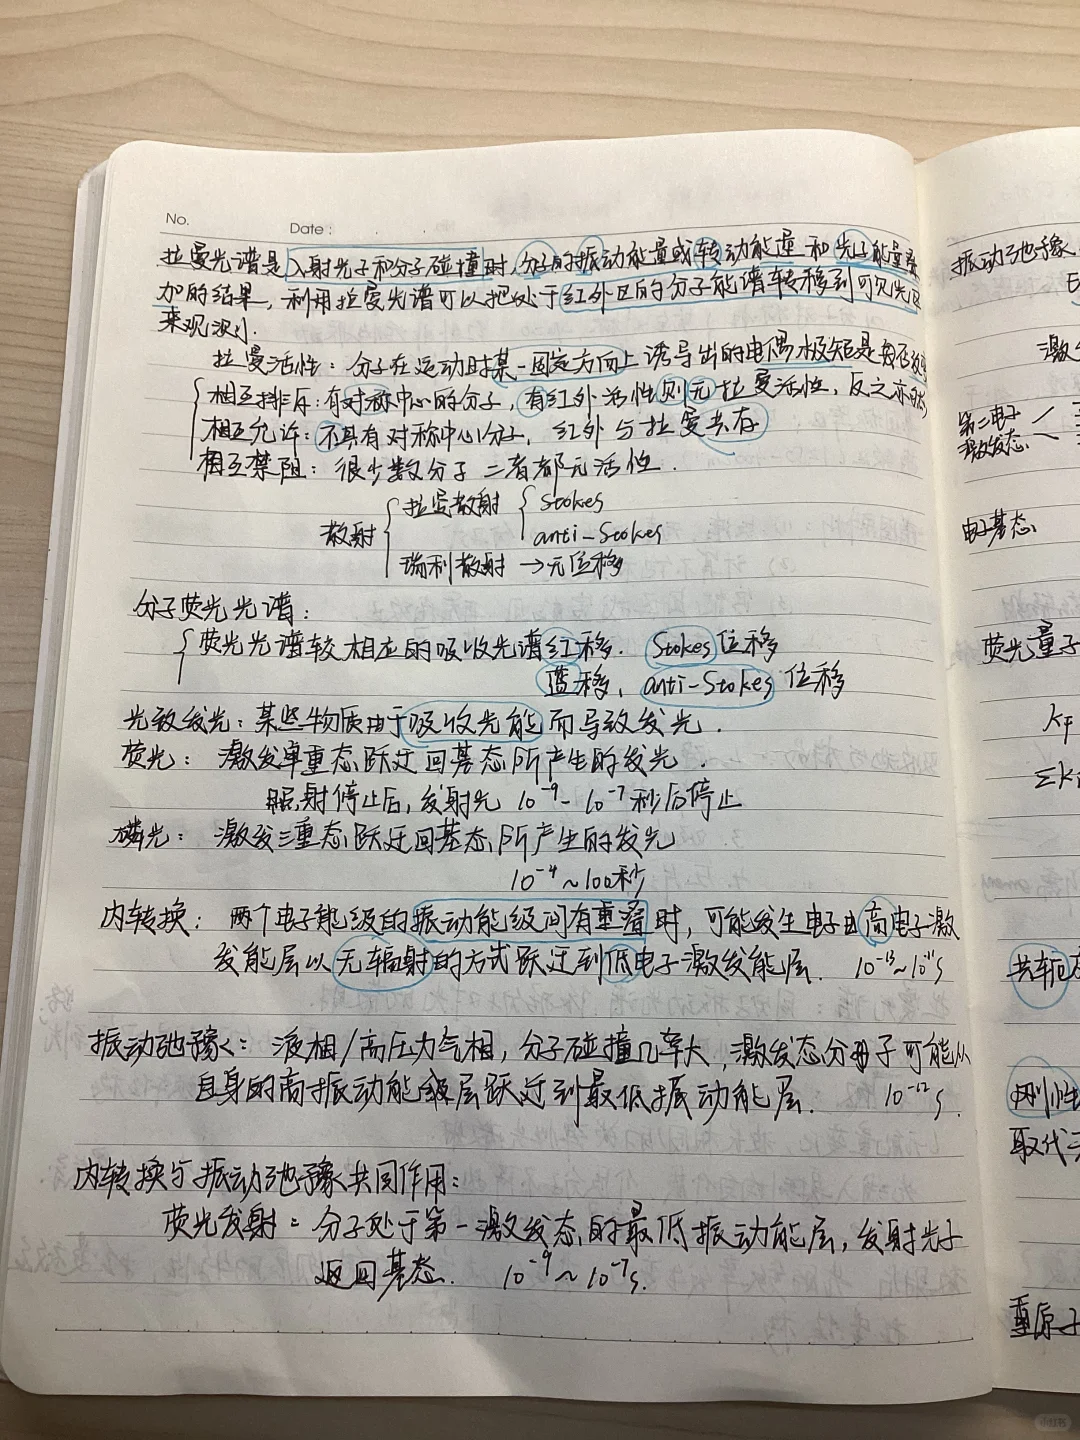 No.
Date:
拉曼光谱是入射光子和分子碰撞时,分子的振动能量或转动能量和光子能量叠
加的结果,利用拉曼光谱可以把处于红外区的分子能谱转移到可见光区
来观测.
拉曼活性:分子在运动时某一固定方向上诱导出的电偶极矩是否改变
相互排斥:有对称中心的分子,有红外活性则无拉曼活性,反之亦然
相互允许:不具有对称中心分子,红外与拉曼共存
相互禁阻:很少数分子二者都无活性.
散射
拉曼散射
Stokes
anti-Stokes
瑞利散射→无位移
分子荧光光谱:
荧光光谱较相应的吸收光谱红移. Stokes位移
蓝移, anti-Stokes位移
光致发光:某些物质由于吸收光能而导致发光.
荧光:激发单重态跃迁回基态所产生的发光.
照射停止后,发射光 10⁻⁹-10⁻⁷秒后停止
磷光:激发三重态跃迁回基态所产生的发光
10⁻⁴~100秒
内转换:两个电子能级的振动能级间有重叠时,可能发生电子由高电子激
发能层以无辐射的方式跃迁到低电子激发能层. 10⁻¹³~10⁻¹¹s
振动弛豫:液相/高压力气相,分子碰撞几率大,激发态分子可能从
自身的高振动能级层跃迁到最低振动能层. 10⁻¹²s.
内转换与振动弛豫共同作用:
荧光发射=分子处于第一激发态的最低振动能层,发射光子
返回基态. 10⁻⁹~10⁻⁷s.
振动弛豫
E
激发
第二电子
激发态
电子基态
荧光量子
KF
ΣK
共轭
刚性
取代
重原子
小红书